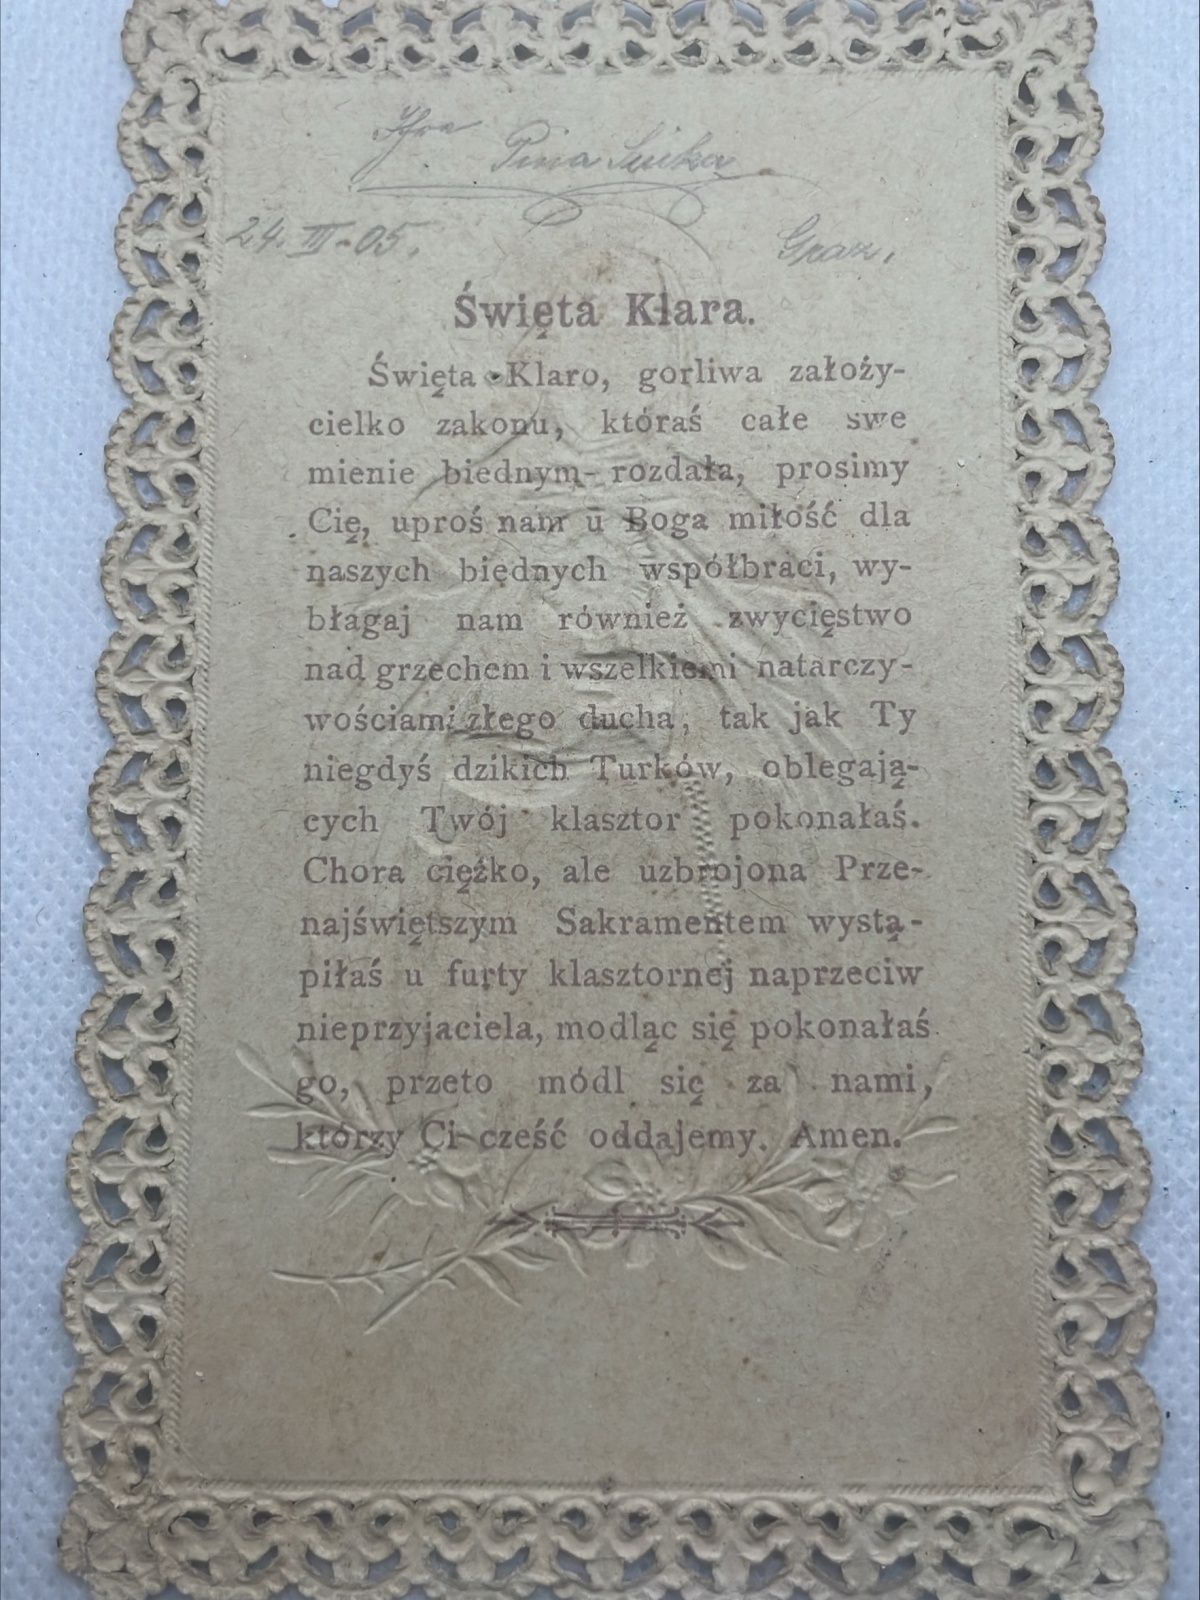 Pina Suika
24. III. 05. Graz,
Święta Klara.
Święta Klaro, gorliwa założy-
cielko zakonu, któraś całe swe
mienie biednym rozdała, prosimy
Cię, uproś nam u Boga miłość dla
naszych biednych współbraci, wy-
błagaj nam również zwycięstwo
nad grzechem i wszelkiemi natarczy-
wościami złego ducha, tak jak Ty
niegdyś dzikich Turków, oblegają-
cych Twój klasztor pokonałaś.
Chora ciężko, ale uzbrojona Prze-
najświętszym Sakramentem wystą-
piłaś u furty klasztornej naprzeciw
nieprzyjaciela, modląc się pokonałaś
go, przeto módl się za nami,
którzy Ci cześć oddajemy. Amen.